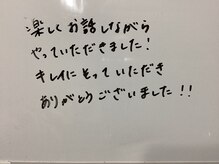 楽しくお話しながら
やっていただきました!
キレイにそっていただき
ありがとうございました!!